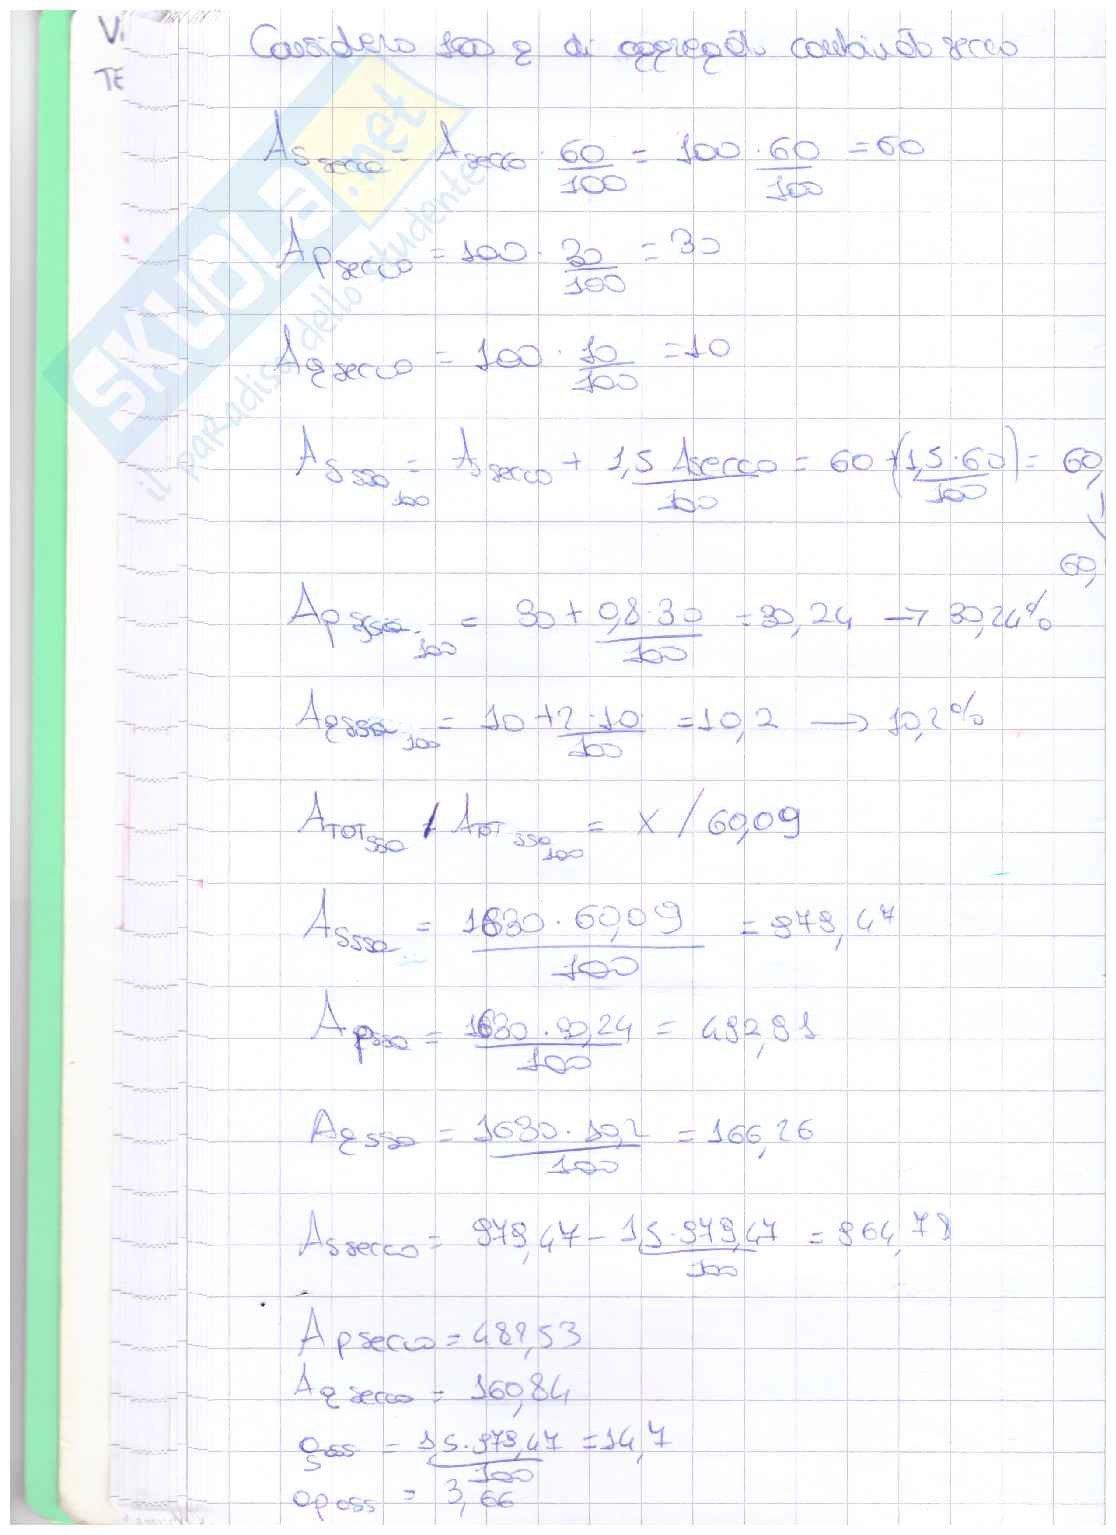 V.
TE
SKUOLA.net
il paradiso dello studente
Considero 100 g di aggregato combinato secco
As secco = A secco · 60/100 = 100 · 60/100 = 60
Ap secco = 100 · 30/100 = 30
Ag secco = 100 · 10/100 = 10
As ssa 100 = A secco + 1,5 A secco/100 = 60 + (1,5·60/100) = 60,
60,
Ap ssa 100 = 30 + 0,8·30/100 = 30,24 → 30,24%
Ag ssa 100 = 10 + 2·10/100 = 10,2 → 10,2%
ATOT ssa / ATOT ssa 100 = x / 60,09
As ssa = 1630 · 60,09/100 = 979,47
Ap ssa = 1630 · 30,24/100 = 492,91
Ag ssa = 1630 · 10,2/100 = 166,26
As secco = 979,47 - 1,5·979,47/100 = 964,78
Ap secco = 489,53
Ag secco = 160,84
as ass = 1,5·979,47/100 = 14,7
ap ass = 3,66